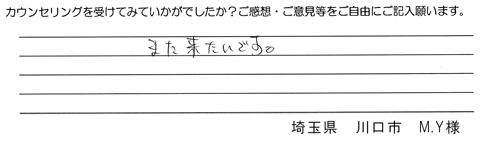 カウンセリングを受けてみていかがでしたか？ご感想・ご意見等をご自由にご記入願います。
また来たいです。
埼玉県　川口市　M.Y様